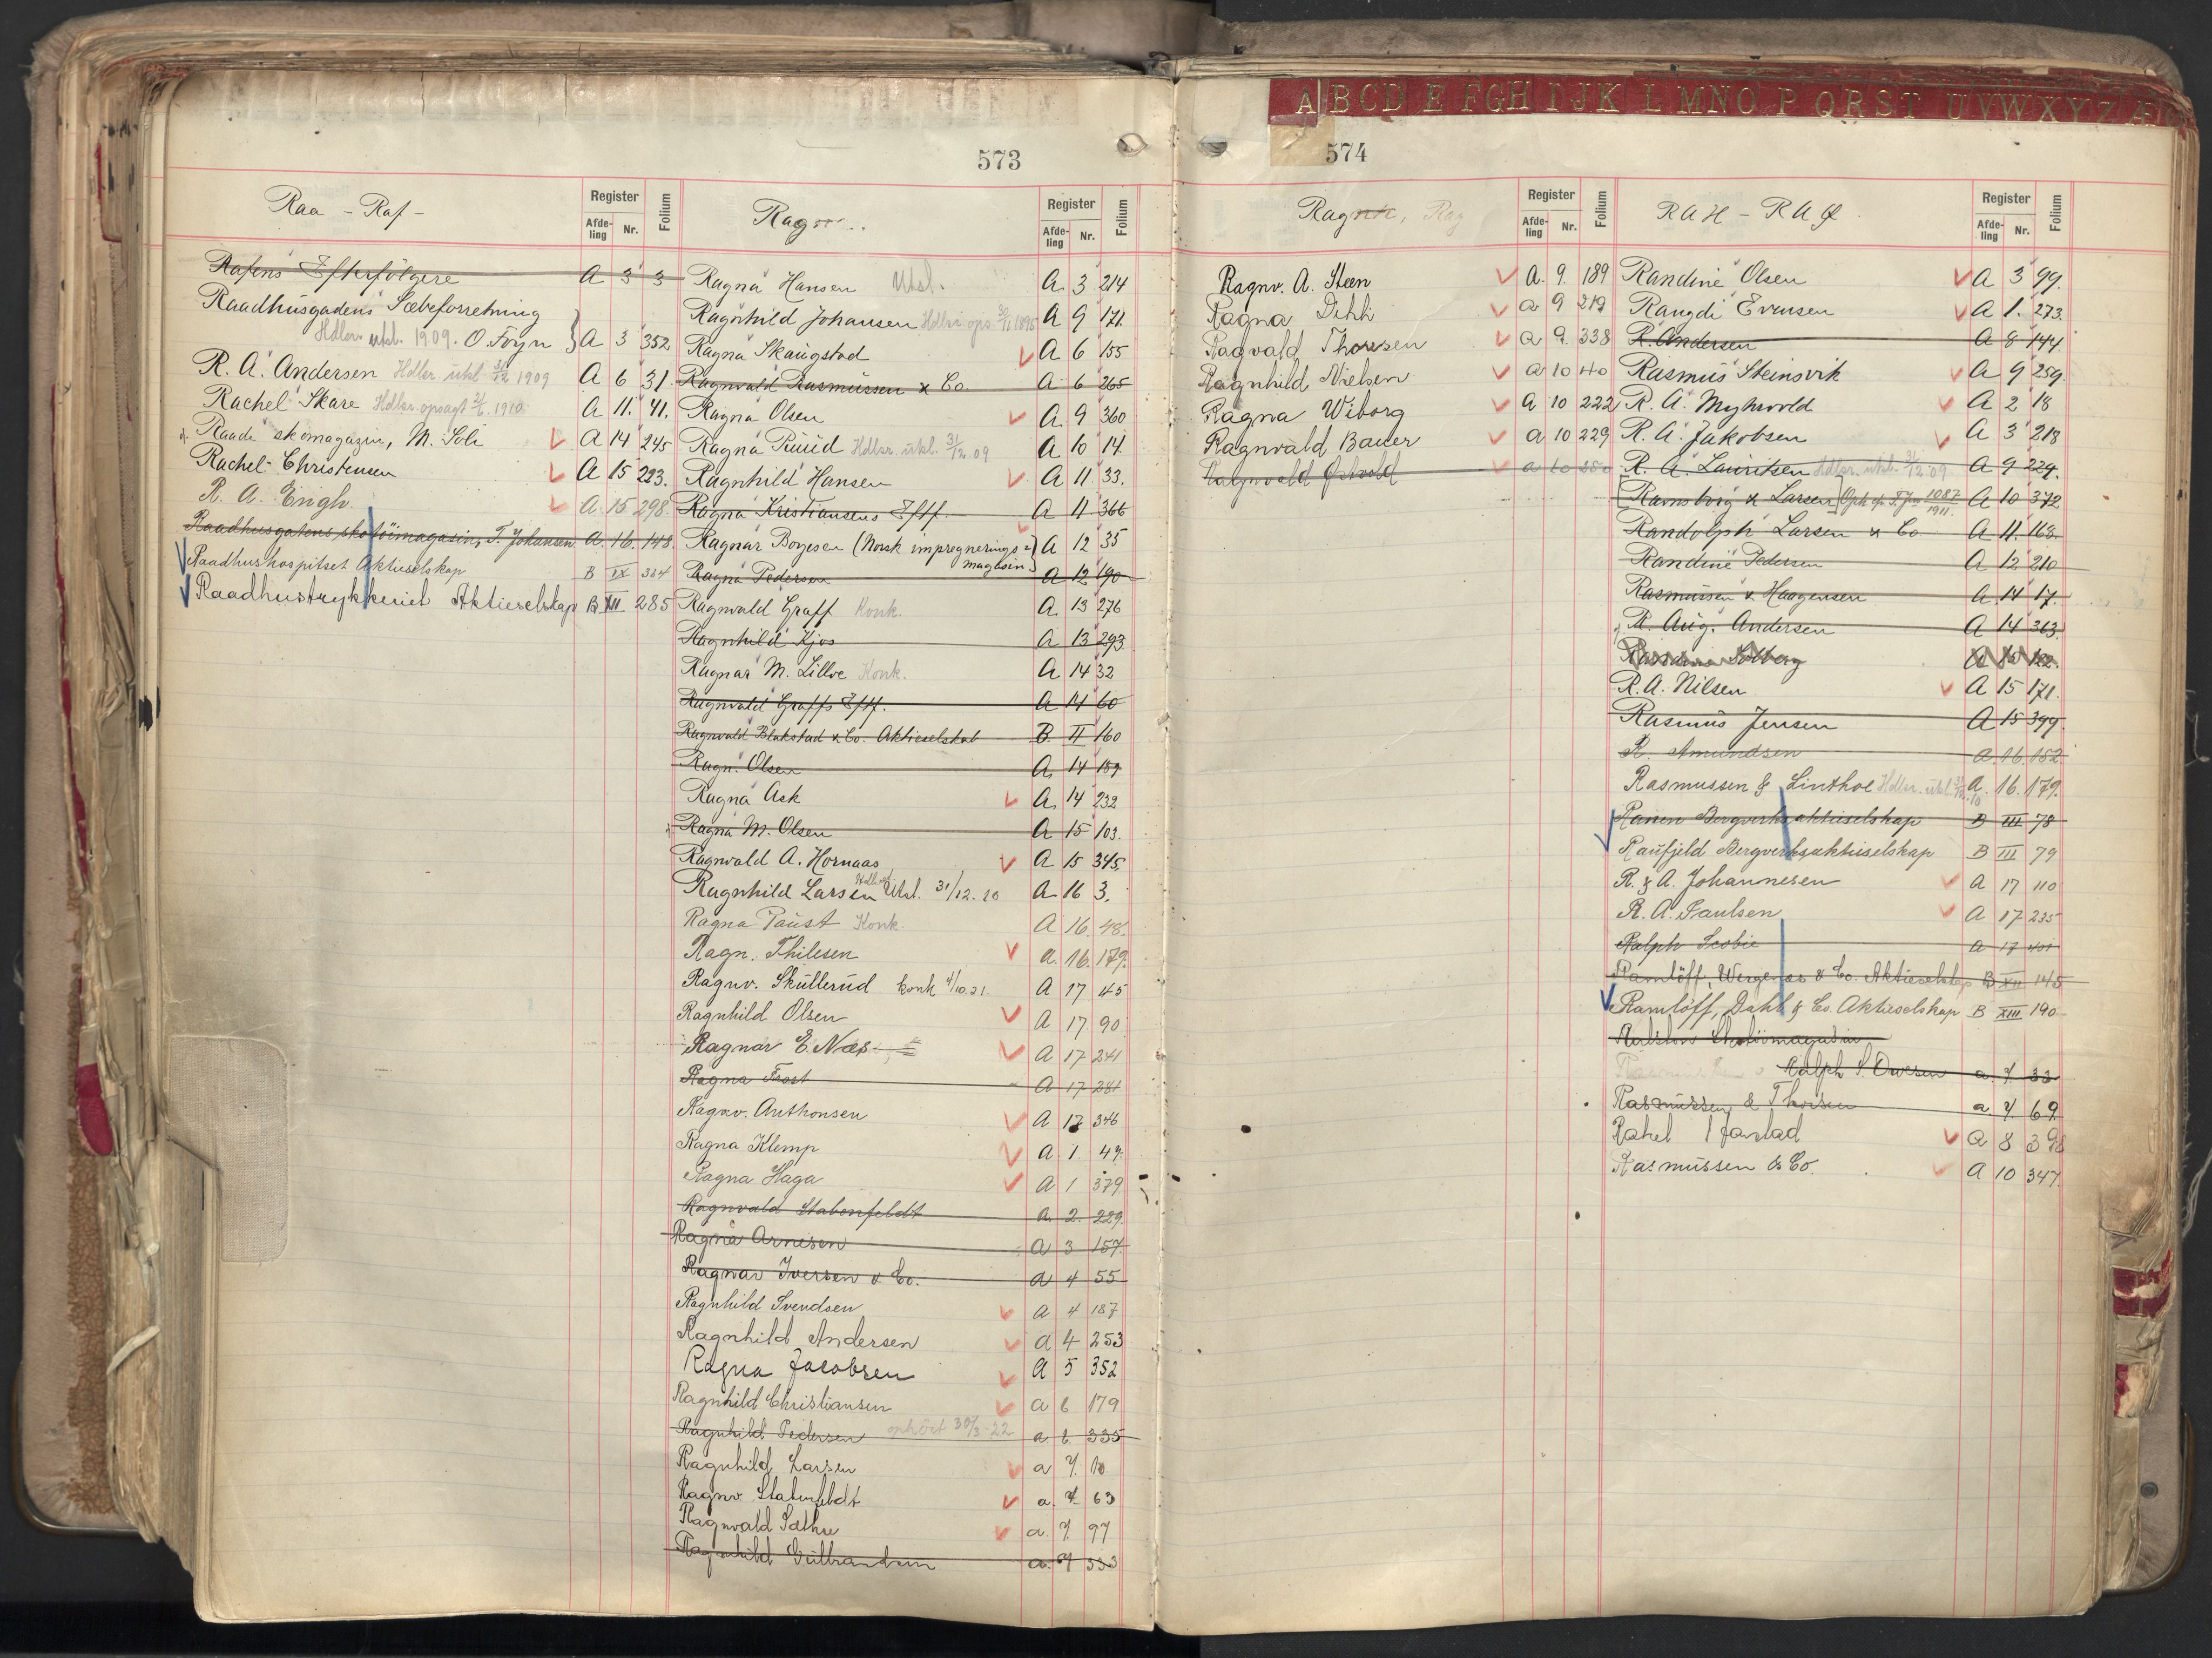 573
Raa - Raf -
Register
Afde-ling Nr. Folium
Rafens Efterfölgere A 3 3
Raadhusgadens Sæbeforretning
Hdlsr. utsl. 1909. O. Foyn } A 3 352
R. A. Andersen Hdlsr. utsl. 31/12 1909 A 6 31.
Rachel Skare Hdlsr. opsagt 1910 A 11. 41.
Raade skomagazin, M. Soli A 14 245
Rachel Christensen A 15 223.
R. A. Engh. A. 15 298
Raadhusgatens skotöimagasin, T. Johansen A. 16. 148.
Raadhushospitset Aktieselskap B IX 364
Raadhustrykkeriet Aktieselskap B XII. 285
Rag
Register
Afde-ling Nr. Folium
Ragna Hansen Utsl. A. 3 214
Ragnhild Johansen Hdlsr. ops. 30/11 1895 A 9 171.
Ragna Skaugstad A 6 155
Ragnvald Rasmussen & Co. A 6 265
Ragna Olsen A. 9 360
Ragna Ruud Hdlsr. utsl. 31/12.09 A 10 14.
Ragnhild Hansen A 11 33.
Ragna Kristiansens Eftf A 11 366
Ragnar Borgesen (Norsk impregnerings= A 12 35
magasin)
Ragna Pedersen A 12 190
Ragnvald Graff Konk. A. 13 276
Ragnhild Kjos A 13 293.
Ragnar M. Lilloe Konk. A. 14 32
Ragnvald Graffs Eftf. A 14 60
Ragnvald Blakstad & Co. Aktieselskab B. II 160
Ragn. Olsen A. 14 189
Ragna Ask A. 14 232
Ragna M. Olsen A 15 103.
Ragnvald A. Hornaas A 15 345,
Ragnhild Larsen Utsl. 31/12.20 A 16 3.
Ragna Paust Konk. A 16. 48.
Ragn. Thilesen A. 16. 179.
Ragnv. Skullerud konk 4/10 21. A 17 45
Ragnhild Olsen A 17 90
Ragnar E. Næs A 17 241
Ragna Frost A 17 281
Ragnv. Anthonsen A 17 346
Ragna Klemp A. 1. 49.
Ragna Haga A 1 379
Ragnvald Stabenfeldt A. 2. 229.
Ragna Arnesen A 3 157.
Ragnar Iversen & Co. A 4 55
Ragnhild Svendsen A 4 187
Ragnhild Andersen A 4 253
Ragna Jacobsen A 5 352
Ragnhild Christiansen A 6 179
Ragnhild Pedersen ophört 30/3 - 22 A. 6. 335
Ragnhild Larsen A 7. 10
Ragnv. Stabenfeldt A. 7. 63
Ragnvald Sæthre A. 7. 97
Ragnhild Gulbrandsen A. 7 333
A B C D E F G H I J K L M N O P Q R S T U V W X Y Z Æ
574
Ragna, Rag
Register
Afde-ling Nr. Folium
Ragnv. A. Steen A. 9. 189
Ragna Dihli A 9 219
Ragvald Thoresen A 9. 338
Ragnhild Nielsen A 10 40
Ragna Wiborg A 10 222
Ragnvald Bauer A 10 229
Ragnvald A 10
RAH - RAØ
Register
Afde-ling Nr. Folium
Randine Olsen A 3 99.
Rangdi Evensen A 1. 273.
R. Andersen A 8 144.
Rasmus Steinsvik A 9 259.
R. A. Myhrvold A 2 18
R. A. Jakobsen A 3 218
R. A. Lauritsen Hdlsr. utsl. 31/12.09 A 9 224.
Ramsborg & Larsen 1087/1911. A 10 372
Randolph Larsen & Co A 11. 168.
Randine Pedersen A 12 210
Rasmussen & Haagensen A. 14 17.
R. Aug. Andersen A 14 363.
Solberg A 15 122.
R. A. Nilsen A 15 171.
Rasmus Jensen A 15 399.
R. Amundsen A. 16. 152.
Rasmussen & Linthoe Hdlsr. utsl. A. 16. 179.
Ranen Bergverksaktieselskap B III 78
Raufjeld Bergverksaktieselskap B III 79
R. & A. Johannesen A 17 110
R. A. Paulsen A 17 235
Ralph Scobie A 17 401
Ramlöff, & Co. Aktieselskap B XII 145
Ramlöff, Dahl & Co. Aktieselskap B XIII 190
Skotöimagasin
Ralph S. Owesen A. 7. 33
Rasmussen & Thorsen A 7 69
Rakel Tjøstad A 8 398
Rasmussen & Co. A 10 347.